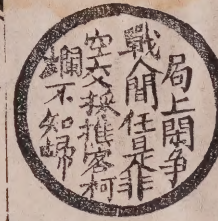 局上閑争
戰人間任是非
空交採樵客柯
欄不知歸